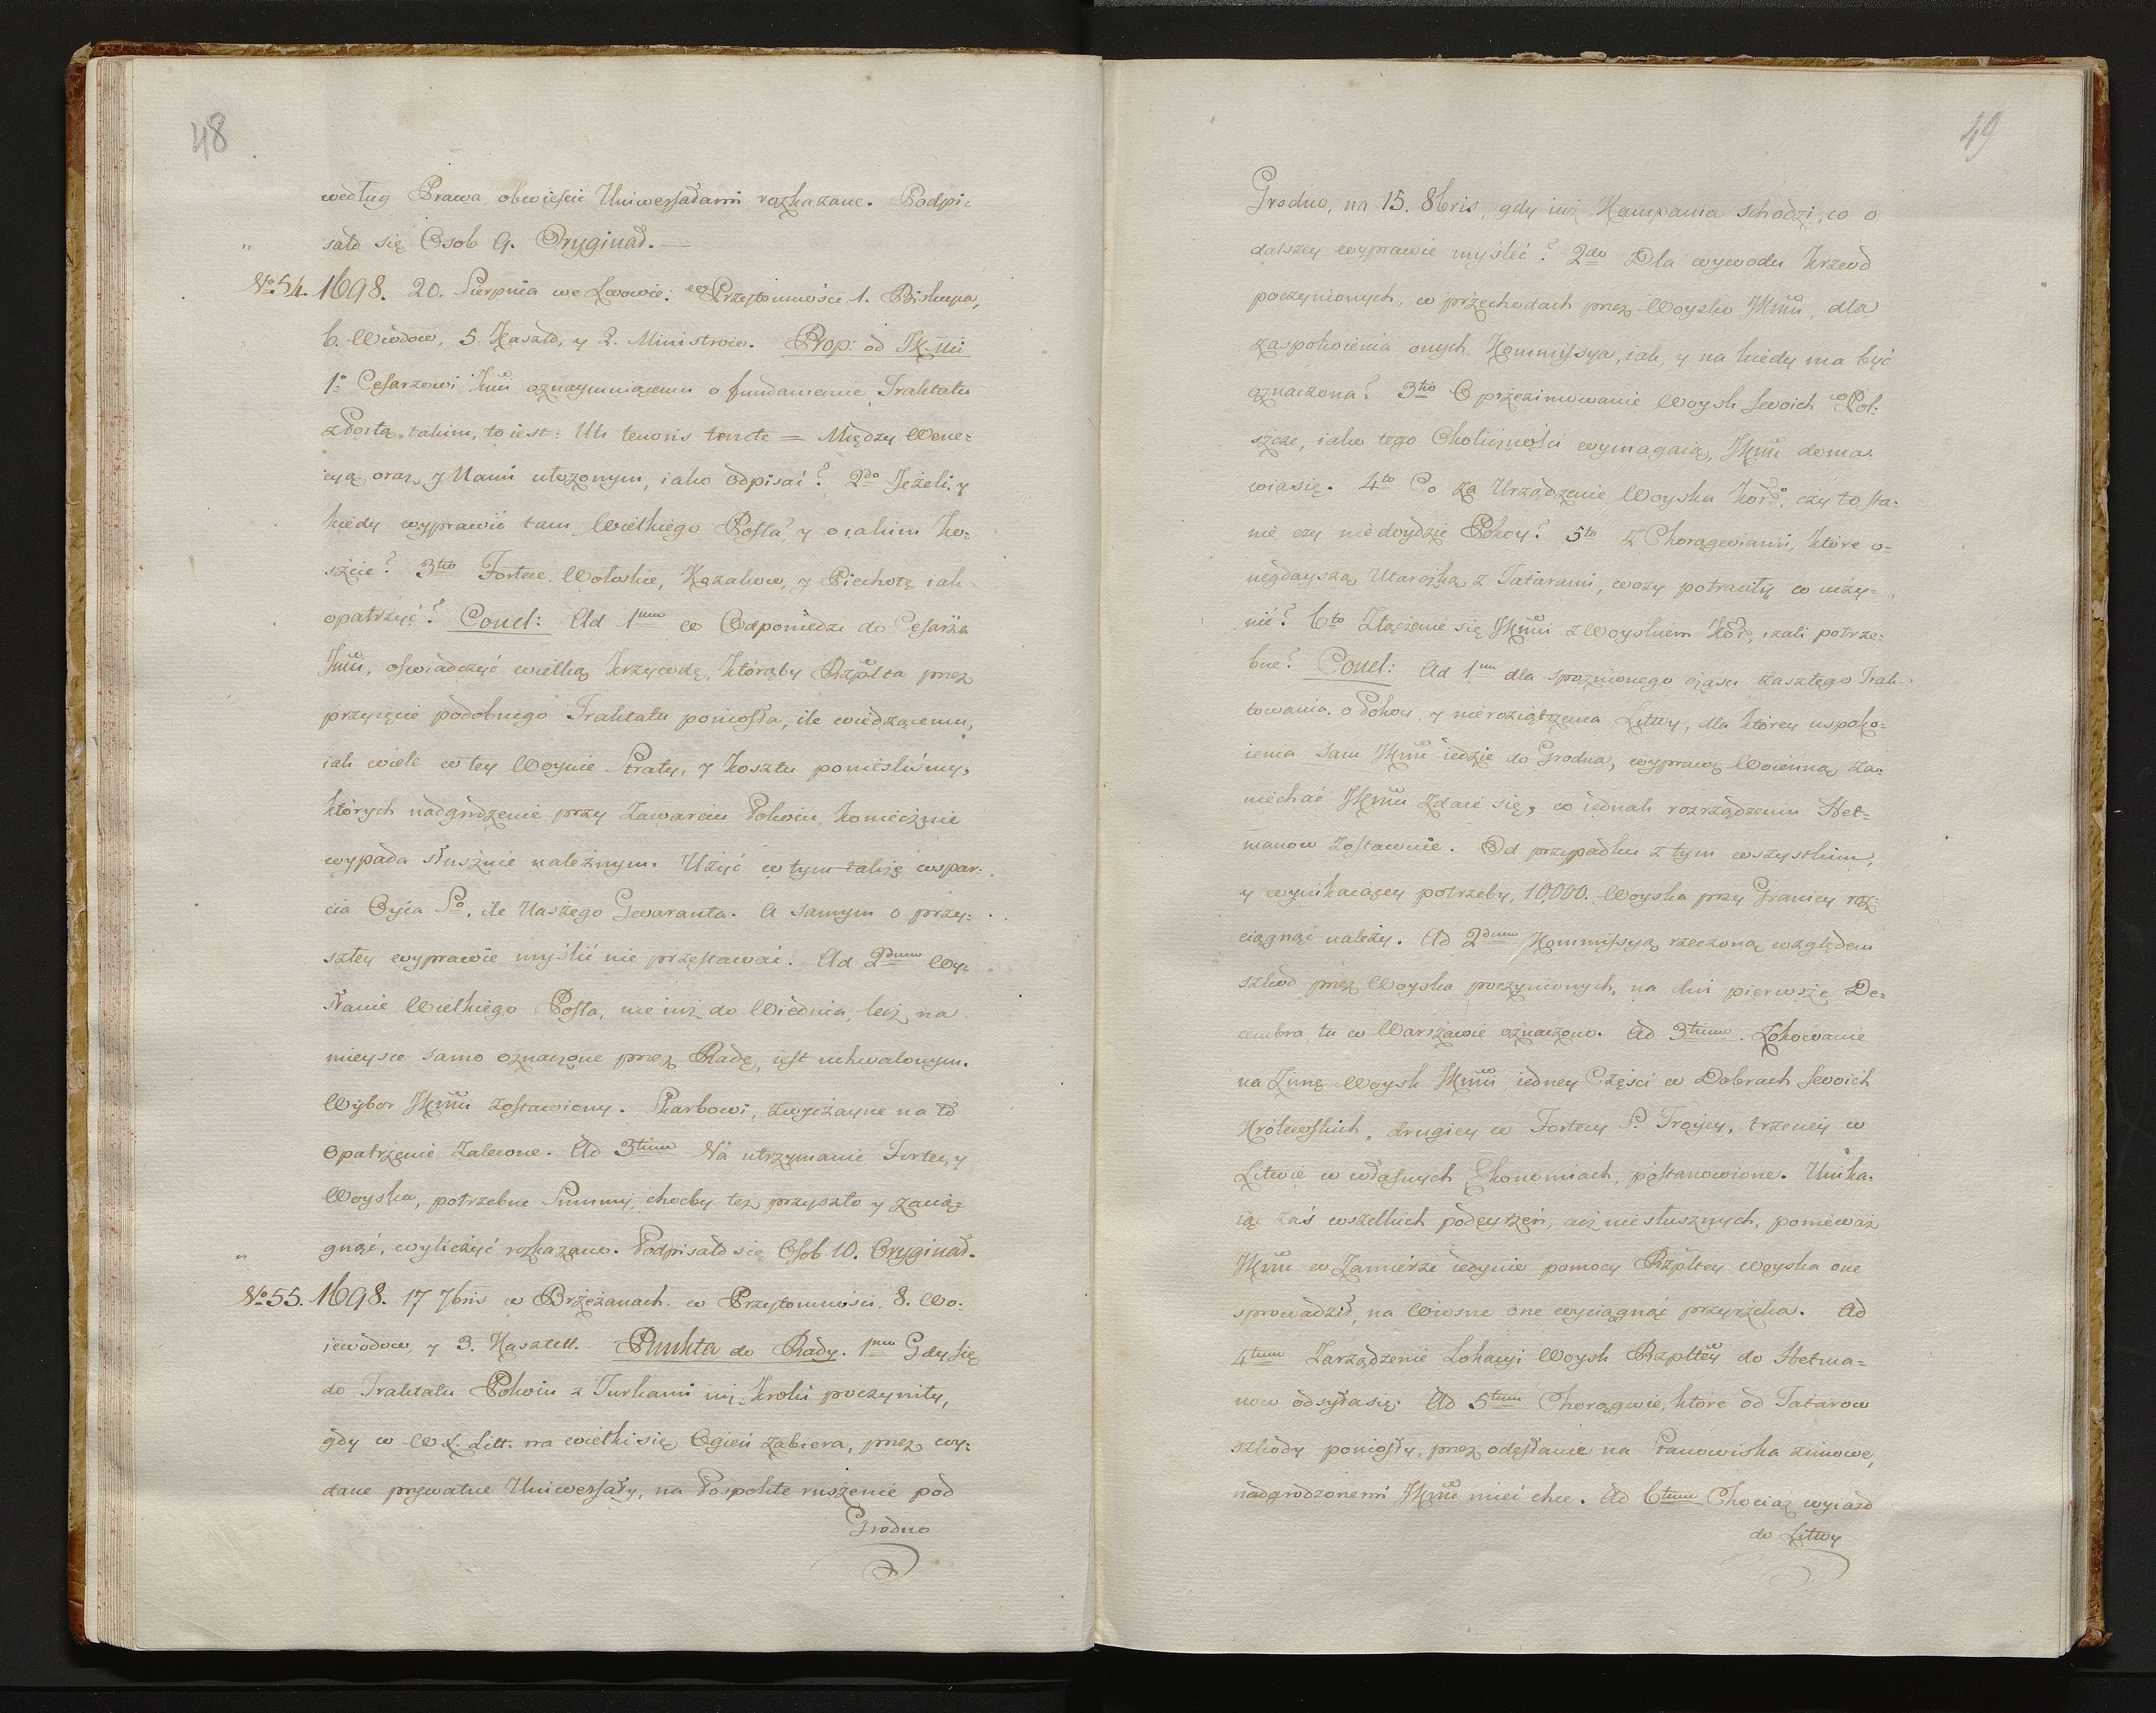 48
według Prawa obwieścić Uniwersałami rozkazane. Podpi=
sało się Osob 9. Oryginał.
No 54. 1698. 20. Sierpnia we Lwowie: w Przytomności 1. Biskupa,
6. Wdow, 5. Kasztt, y 2. Ministrow. Prop: od JKMci
1o Cesarzowi Jmci oznaymuiącemu o fundamencie Traktatu
z Portą takim, to iest: Uti tenoris tenete = Między Wene=
cyą, oraz y Nami ułożonym, iako odpisać? 2do Jeżeli y
kiedy wyprawić tam Wielkiego Posła y o iakim ko=
szcie? 3tio Fortece Wołoskie, Kozakow, y Piechotę iak
opatrzyć? Concl: Ad 1mum w Odpowiedzi do Cesarza
Jmci, oświadczyć wielką krzywdę, którąby Rzplta przez
przyięcie podobnego Traktatu poniosła, ile wiedzącemu,
iak wiele w tey Woynie Straty, y kosztu ponieśliśmy,
których nadgrodzenie przy Zawarciu Pokoiu, koniecznie
wypada słusznie należnym. Użyć w tym także wspar=
cia Oyca So, ile Naszego Gwaranta. A samym o przy=
szłey wyprawie myślić nie przestawać. Ad 2dum Wy=
słanie Wielkiego Posła, nie iuż do Wiednia, lecz na
mieysce samo oznaczone przez Radę, iest uchwalonym.
Wybor JKMci zostawiony. Skarbowi, zwyczayne na to
opatrzenie zalecone. Ad 3tium Na utrzymanie Fortec, y
Woyska, potrzebne Summy, choćby też przyszło y zacią=
gnąć, wyliczyć rozkazano. Podpisało się Osob 10. Oryginał.
No 55. 1698. 17 7bris w Brzeżanach. w Przytomności. 8. Wo=
iewodow, y 3. Kasztell. Punkta do Rady. 1mo Gdy się
do Traktatu Pokoiu z Turkami iuż kroki poczyniły,
gdy w W. X. Litt. na wielki się Ogień zabiera, przez wy=
dane prywatne Uniwersały, na Pospolite ruszenie pod
Grodno
49
Grodno, na 15. 8bris, gdy iuż Kampania schodzi, co o
dalszey wyprawie myśleć? 2do Dla wywodu krzywd
poczynionych, w przechodach przez Woysko JKMci, dla
zaspokoienia onych, Kommissya, iak, y na kiedy ma być
oznaczona? 3tio O przezimowanie Woysk swoich w Pol=
szcze, iako tego Okoliczności wymagaią, JKMci doma=
wia się. 4to Co za Urządzenie Woyska Kor: czy to sta=
nie, czy nie doydzie Pokoy? 5to Z Chorągwiami, które o=
negdayszą Utarczką z Tatarami, wozy potraciły co uczy=
nić? 6to Złączenie się JKMci z Woyskiem Kor: izali potrze=
bne? Concl: Ad 1mum dla spoznionego czasu zaszłego Trak=
towania o Pokoy, y nierozjątrzenia Litwy, dla którey uspoko=
ienia Sam JKMć iedzie do Grodna, wyprawę Wojenną za=
niechać JKMci zdaie się, co iednak rozrządzeniu Het=
manow zostawuie. Od przypadku z tym wszystkim,
y wynikaiącey potrzeby, 10,000. Woyska przy Granicy roz=
ciągnąć należy. Ad 2dum Kommissyą rzeczoną względem
szkod przez Woyska poczynionych, na dni pierwsze De=
cembra tu w Warszawie oznaczono. Ad 3tium. Lokowanie
na Zimę Woysk JKMci iedney Części w Dobrach swoich
Królewskich, drugiey w Fortecy S. Troycy, trzeciey w
Litwie w własnych Ekonomiach, postanowione. Unika=
iąc zaś wszelkich podeyrzeń, acz niesłusznych, ponieważ
JKMć w Zamierze iedynie pomocy Rzpltey woyska one
sprowadził, na Wiosnę one wyciągnąć przyrzeka. Ad
4tum Zarządzenie Lokacyi Woysk Rzpltey do Hetma=
now odsyła się. Ad 5tum Chorągwie, które od Tatarow
szkody poniosły, przez odesłanie na Stanowiska zimowe,
nadgrodzonemi JKMć mieć chce. Ad 6tum Chociaż wyiazd
do Litwy